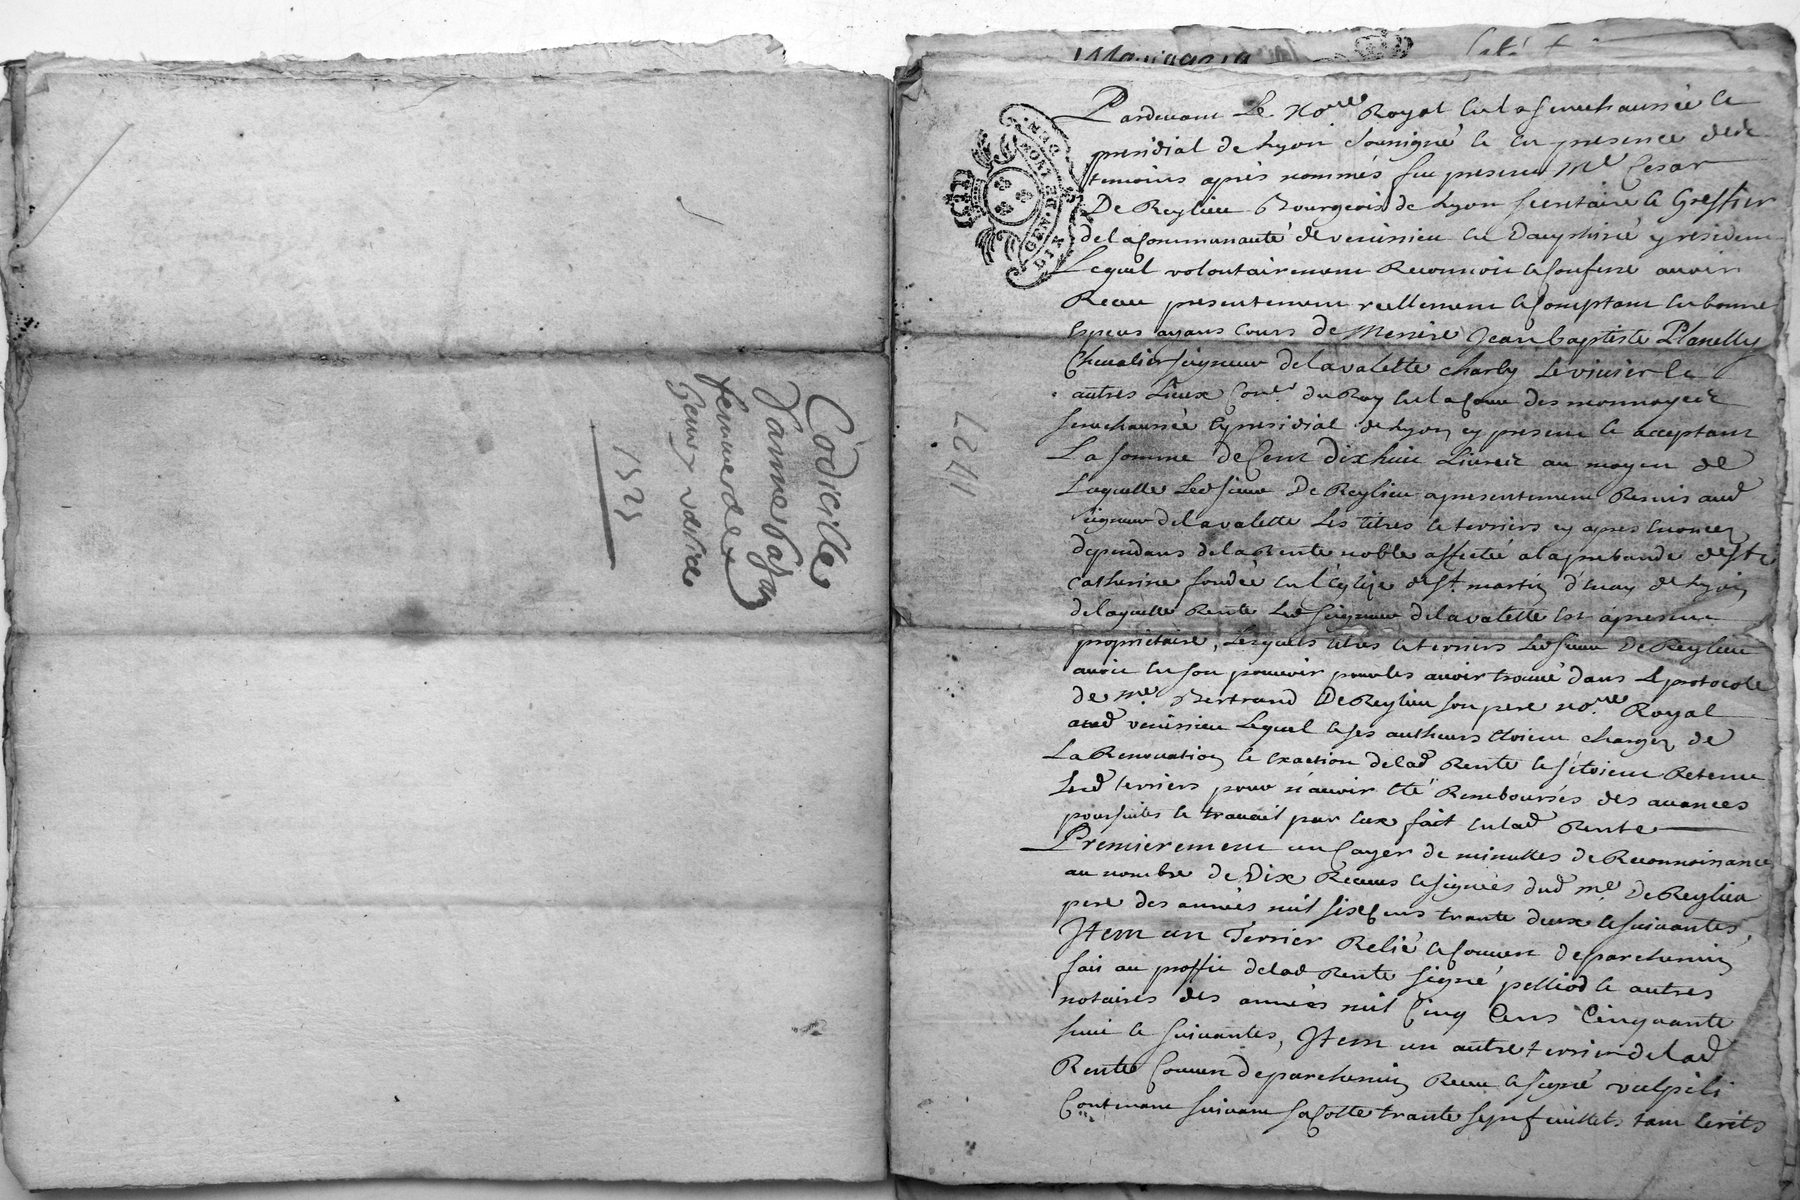 Codicille
Janne
femme de
1525
L 211
GEN. DE LYON
DIX DEN.
Pardevant Le No.re Royal en la senechaussée et
presidial de Lyon soussigné et en presence des
temoins apres nommés fut present M.e Cesar
De Reylieu Bourgeois de Lyon secretaire et Greffier
de la Communauté de venissieu en Dauphiné y residant
Lequel volontairement Reconnoit et confesse avoir
Receu presentement reellement et comptant en bonnes
especes ayans cours de Messire Jean baptiste Planelly
Chevalier seigneur de la valette charly Le vivier et
autres Lieux Con.er du Roy en la Cour des monnoyes
senechaussée et presidial de Lyon cy present et acceptant
La somme de Cent dixhuit Livres au moyen de
Laquelle Led sieur De Reylieu a presentement Remis aud
seigneur de la valette Les titres et terriers cy apres enoncez
dependans de la Rente noble affectée a la prebande de Ste
Catherine fondée en l'Eglize de St martin d'Enay de Lyon
de laquelle Rente Led Seigneur de la valette est a present
proprietaire, Lesquels titres et terriers Led sieur De Reylieu
avoit en son pouvoir pour les avoir trouvé dans Le protocole
de M.e Bertrand De Reylieu son pere no.re Royal
aud venissieu Lequel et ses autheurs étoient chargez de
La Renovation et exaction de lad Rente et s'étoient Retenu
Lesd terriers pour n'avoir été Remboursés des avances
poursuites et travail par eux fait en lad Rente
Premierement un Cayer de minuttes de Reconnoissance
au nombre de Dix Receues et signées dud M.e De Reylieu
pere des années mil six Cens trante deux et suivantes,
Item un Terrier Relié et couvert de parchemin
fait au proffit de lad Rente signé pelliod et autres
notaires des années mil Cinq Cens Cinquante
huit et suivantes, Item un autre terrier de lad
Rente Couvert de parchemin Receu et signé vulpili
Contenant suivant sa Cotte trante sept feuillets tant Ecrits